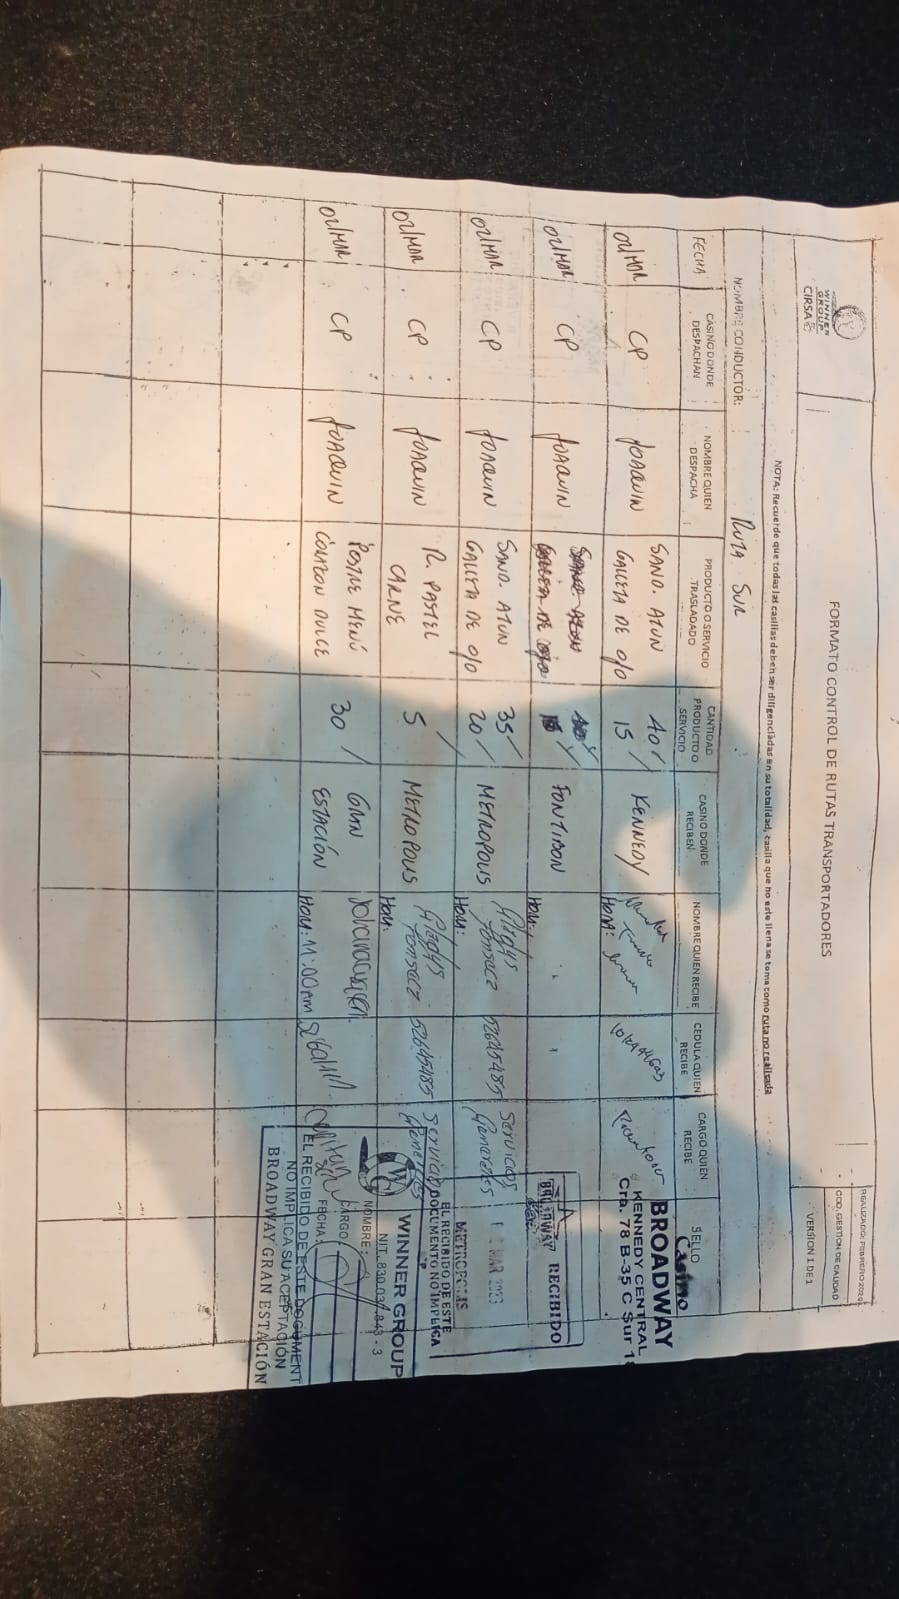 WINNER
GROUP
CIRSA
FORMATO CONTROL DE RUTAS TRANSPORTADORES
REALIZADO: FEBRERO 2020
COD. GESTION DE CALIDAD
VERSION 1 DE 1
NOTA: Recuerde que todas las casillas deben ser diligenciadas en su totalidad, casilla que no este llena se toma como ruta no realizada
NOMBRE CONDUCTOR: RUTA SUR
FECHA
CASINO DONDE DESPACHAN
NOMBRE QUIEN DESPACHA
PRODUCTO O SERVICIO TRASLADADO
CANTIDAD PRODUCTO O SERVICIO
CASINO DONDE RECIBEN
NOMBRE QUIEN RECIBE
CEDULA QUIEN RECIBE
CARGO QUIEN RECIBE
SELLO
02/MAR CP JOAQUIN SAND. ATUN 40 / KENNEDY
GALLETA DE O/O 15 HORA:
BROADWAY
Casino
KENNEDY CENTRAL
Cra. 78 B-35 C Sur
02/MAR CP JOAQUIN FONTIBON
HORA:
BROADWAY RECIBIDO
02/MAR CP JOAQUIN SAND. ATUN 35 / METROPOLIS Gladys 52645485 Servicios
GALLETA DE O/O 20 / HORA: Generales
MAR 2023
METROPOLIS
EL RECIBIDO DE ESTE
DOCUMENTO NO IMPLICA
02/MAR CP JOAQUIN R. PASTEL 5 / METROPOLIS Gladys 52645485 Servicios
CARNE HORA: Generales
WINNER GROUP
NIT. 830.037.843 - 3
02/MAR CP JOAQUIN POSTRE MENÚ 30 / GRAN
CORAZON DULCE ESTACIÓN HORA: 11:00am
NOMBRE:
CARGO
FECHA:
EL RECIBIDO DE ESTE DOCUMENT
NO IMPLICA SU ACEPTACIÓN
BROADWAY GRAN ESTACIÓN